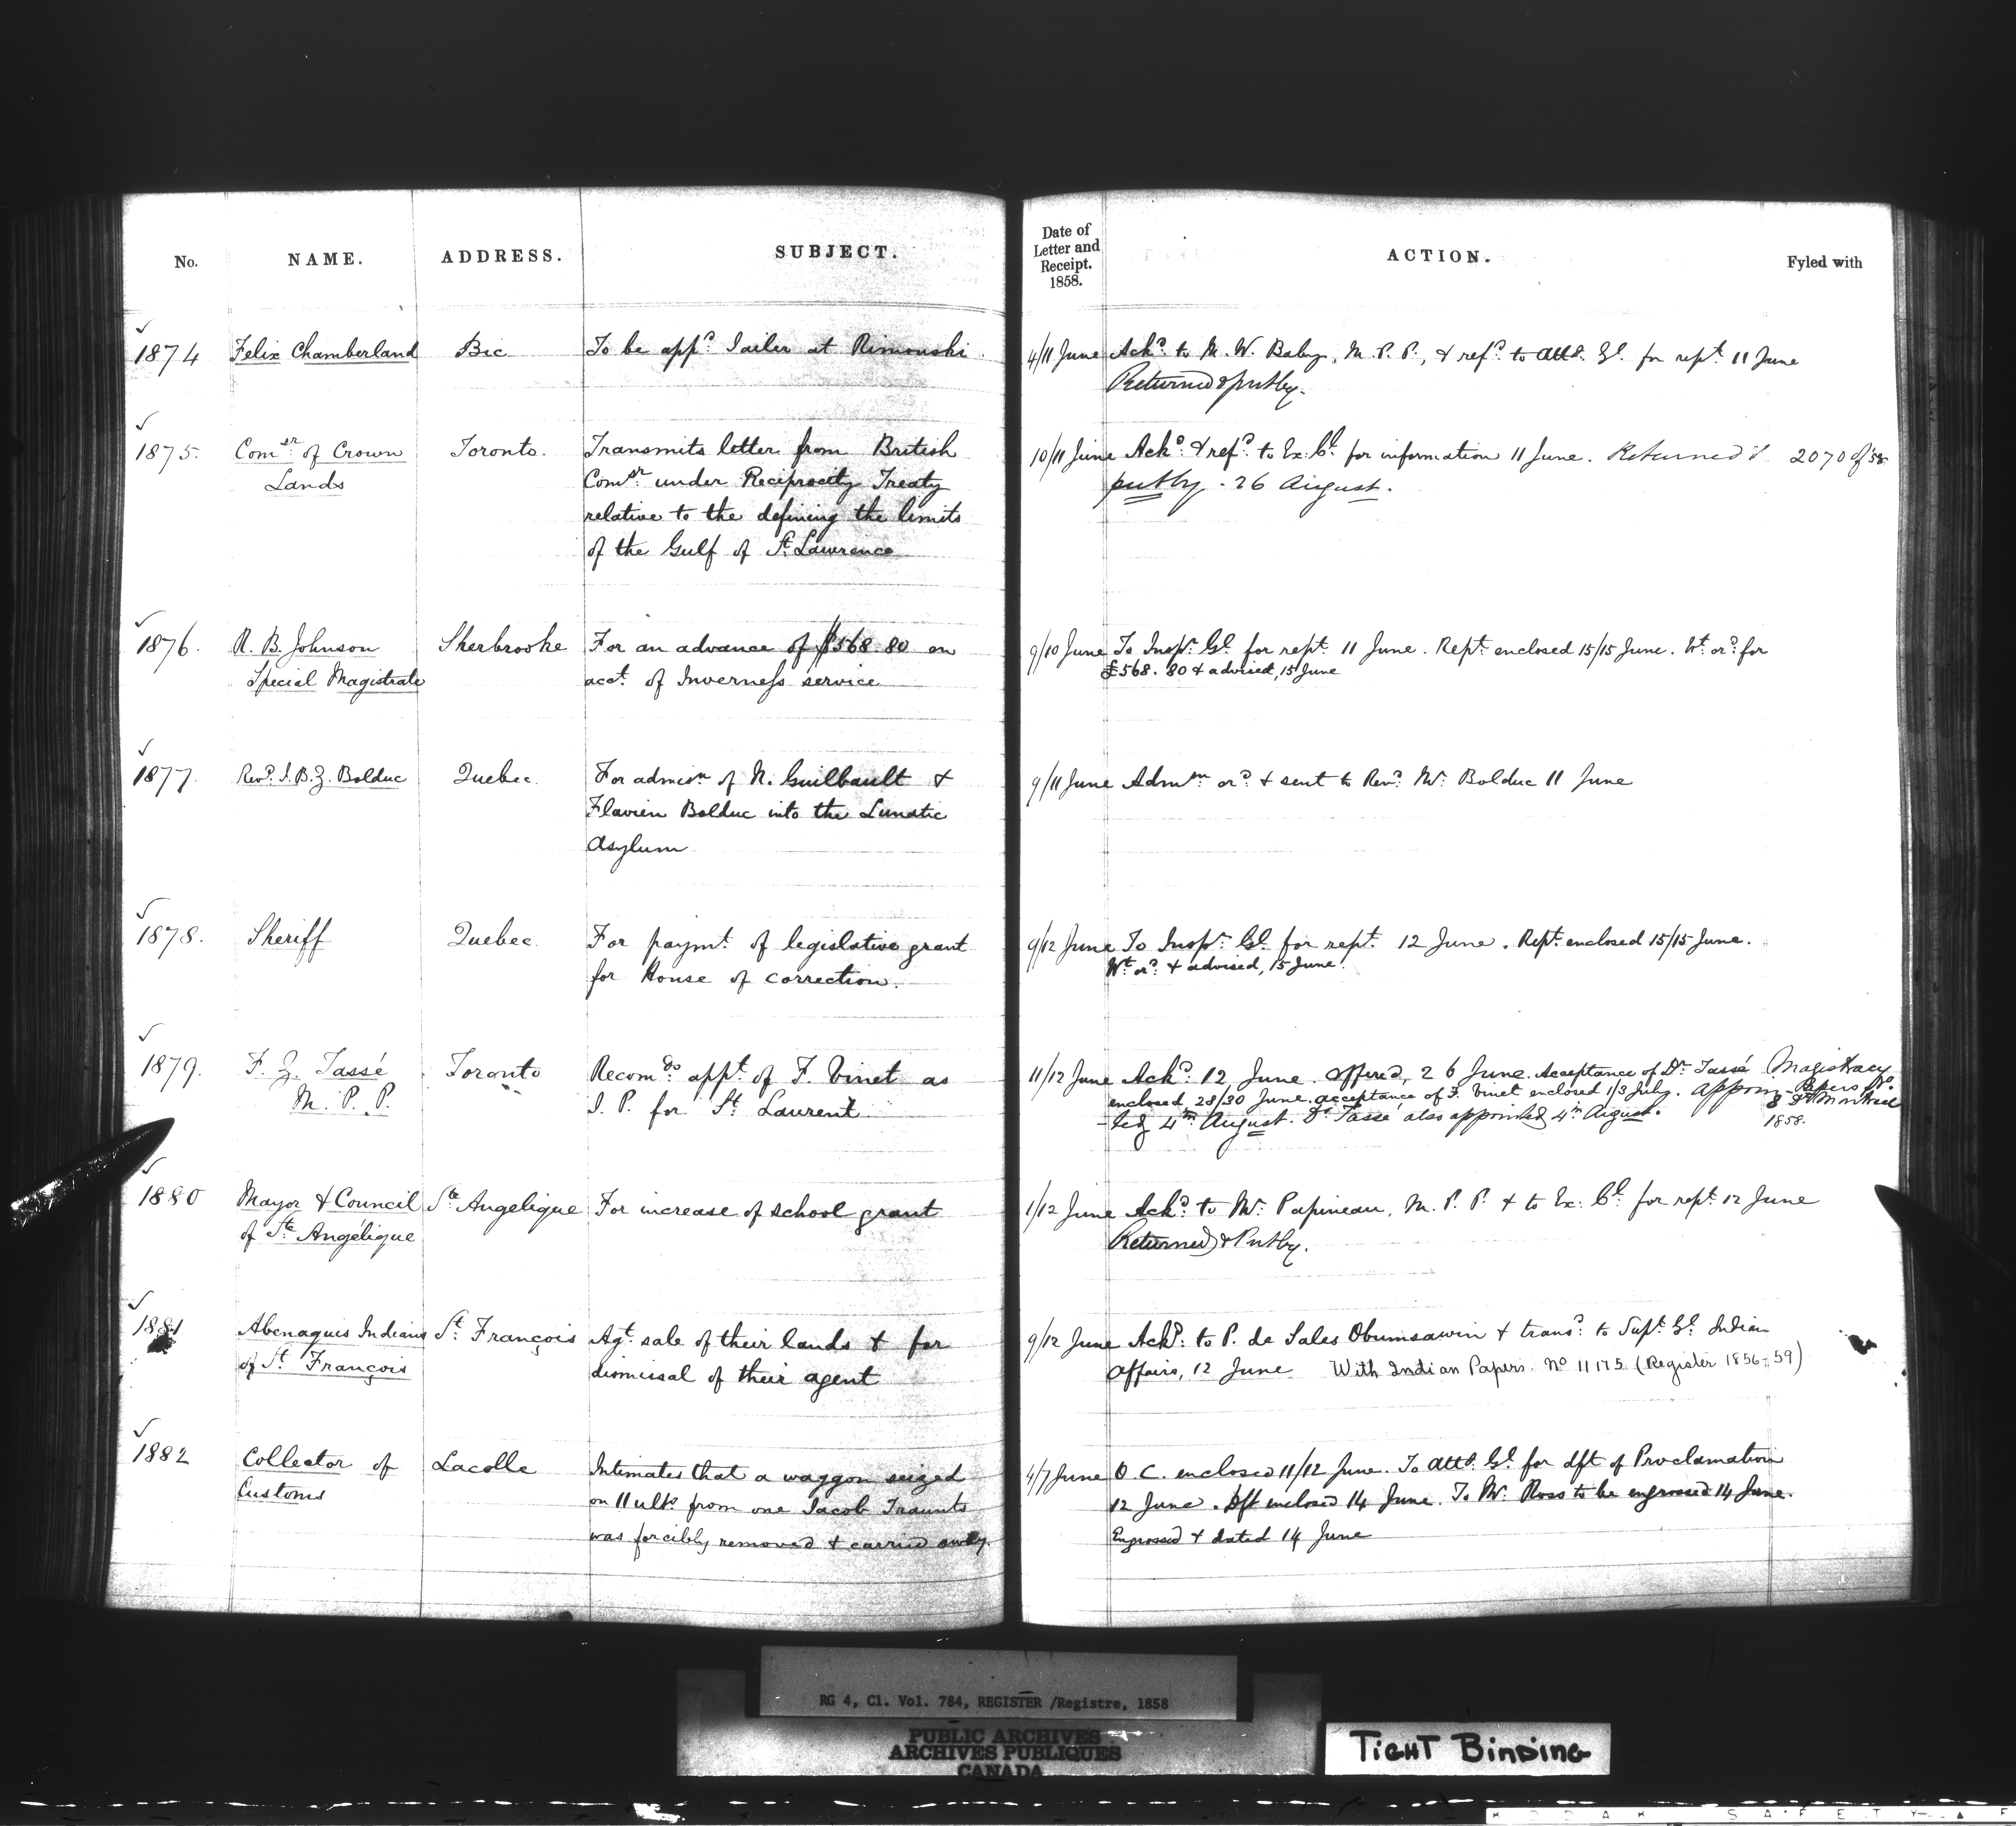 No. NAME. ADDRESS. SUBJECT.
Date of
Letter and
Receipt.
1858.
ACTION. Fyled with
1874 Felix Chamberland Bic To be app^d Jailer at Rimouski 4/11 June Ack^d to M. W. Baby, M. P. P., & ref^d to Att^y Gl. for rept. 11 June
Returned & put by.
1875. Com^sr of Crown Toronto. Transmits letter from British 10/11 June Ack^d & ref^d to Ex: Cl. for information 11 June. Returned & 2070 of '58
Lands Com^sr under Reciprocity Treaty put by. 26 August.
relative to the defining the limits
of the Gulf of St. Lawrence
1876. R. B. Johnson Sherbrooke For an advance of $568.80 on 9/10 June To Insp^r Gl. for rept. 11 June. Rept. enclosed 15/15 June. Wt. or^d for
Special Magistrate acct. of Inverness service £568.80 & advised, 15 June
1877. Rev^d J. B. Z. Bolduc Quebec. For admis^n of N. Guilbault & 9/11 June Adm^sn or^d & sent to Rev^d Mr. Bolduc 11 June
Flavien Bolduc into the Lunatic
Asylum
1878. Sheriff Quebec. For paymt. of legislative grant 9/12 June To Insp^r Gl. for rept. 12 June. Rept. enclosed 15/15 June.
for House of correction. Wt. or^d & advised, 15 June.
1879. F. Z. Tassé Toronto Recom^ds appt. of F. Vinet as 11/12 June Ack^d 12 June. Offered, 26 June. Acceptance of Dr. Tassé Magistracy
M. P. P. J. P. for St. Laurent enclosed 28/30 June. Acceptance of F. Vinet enclosed 1/3 July. Appoin- Papers No.
-ted 4th August. Dr. Tassé also appointed 4th August. 8 Dt. Montreal
1858.
1880 Mayor & Council Ste Angelique For increase of school grant 1/12 June Ack^d to Mr. Papineau, M. P. P. & to Ex: Cl. for rept. 12 June
of Ste Angélique Returned & Put by.
1881 Abenaquis Indians St. François Agt. sale of their lands & for 9/12 June Ack^d to P. de Sales Obumsawin & trans^d to Supt. Gl. Indian
of St. François dismissal of their agent Affairs, 12 June With Indian Papers. No 11175 (Register 1856-59)
1882 Collector of Lacolle Intimates that a waggon seized 4/7 June O. C. enclosed 11/12 June. To Att^y Gl. for dft of Proclamation
Customs on 11 ult^o from one Jacob Traunts 12 June. Dft enclosed 14 June. To Mr. Ross to be engrossed 14 June.
was forcibly removed & carried away. Engrossed & dated 14 June
RG 4, C1. Vol. 784, REGISTER /Registre, 1858
PUBLIC ARCHIVES
ARCHIVES PUBLIQUES
CANADA
TIGHT BINDING
KODAK SAFETY F